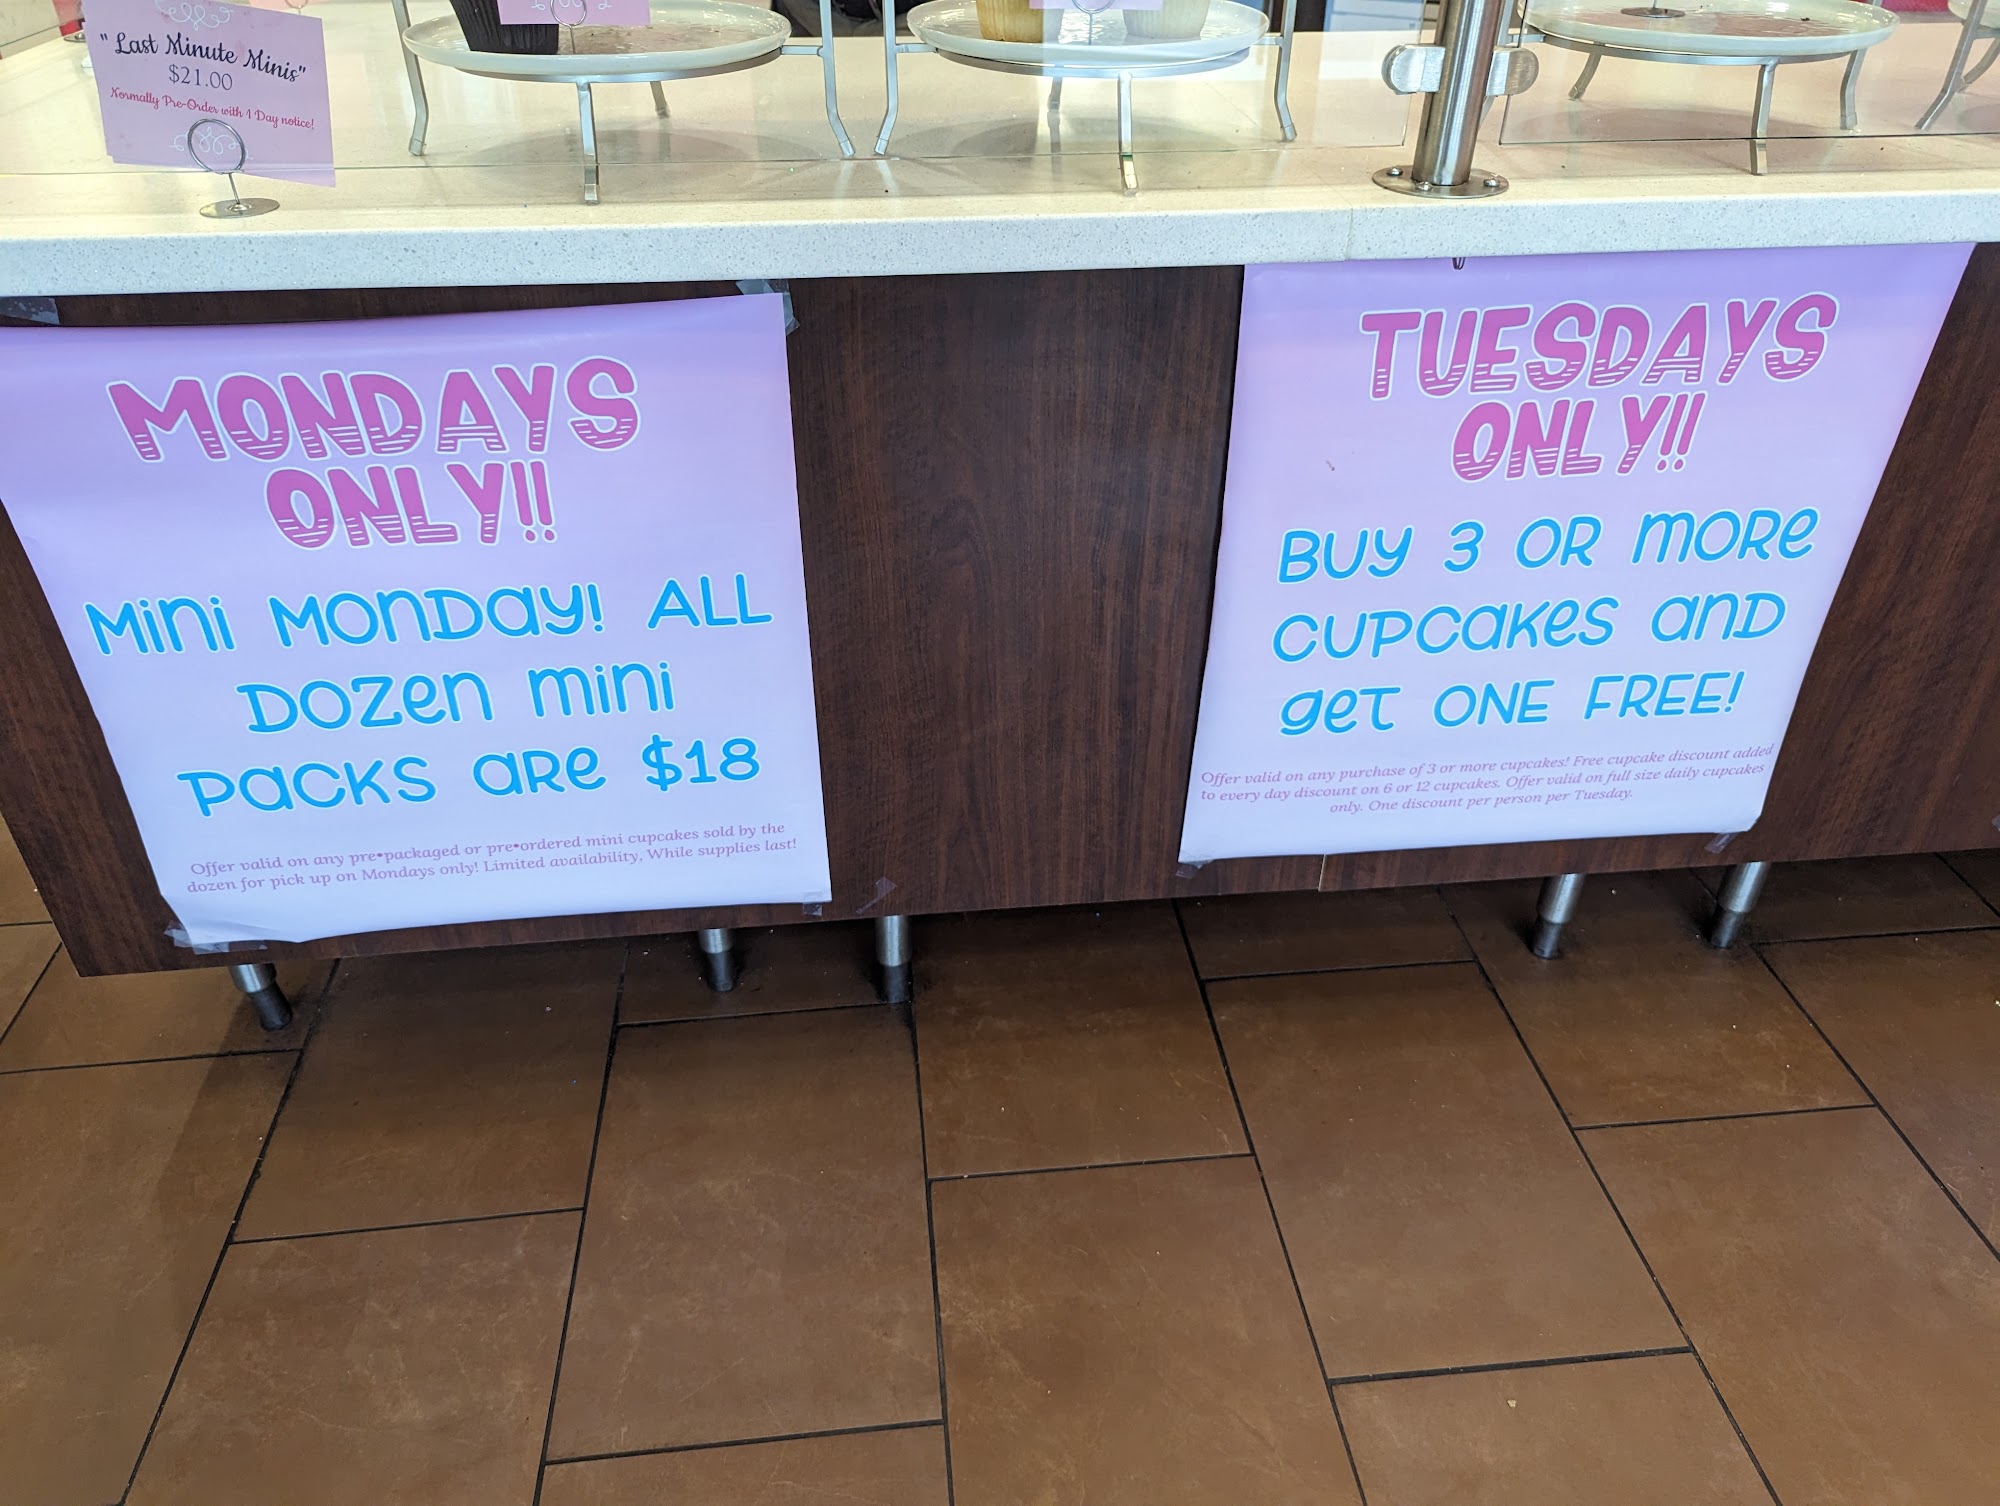 "Last Minute Minis"
$21.00
Normally Pre-Order with 1 Day notice!
MONDAYS
ONLY!!
Mini Monday! ALL
Dozen mini
packs are $18
Offer valid on any pre•packaged or pre•ordered mini cupcakes sold by the
dozen for pick up on Mondays only! Limited availability, While supplies last!
TUESDAYS
ONLY!!
Buy 3 or more
cupcakes and
get ONE FREE!
Offer valid on any purchase of 3 or more cupcakes! Free cupcake discount added
to every day discount on 6 or 12 cupcakes. Offer valid on full size daily cupcakes
only. One discount per person per Tuesday.